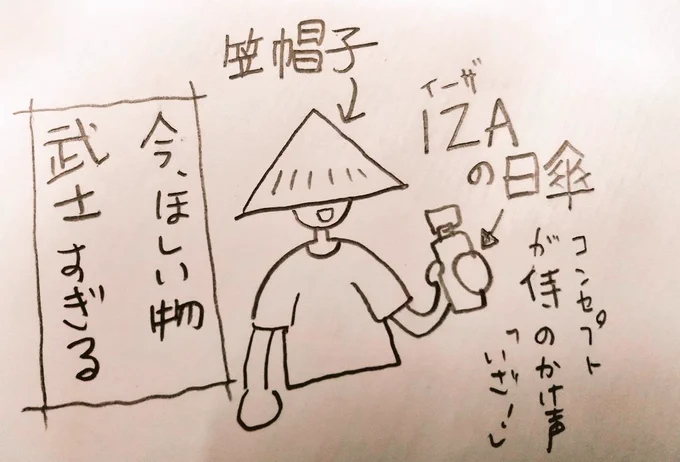 今、ほしい物
武士すぎる
笠帽子
イーザ
IZA
の日傘
コンセプト
が侍のかけ声
「いざ！」